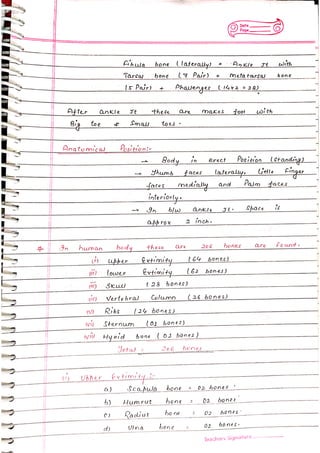 Date
Page
Fibula bone (laterally) + Ankle Jt with
Tarsal bone (7 Pair) + metatarsal bone
(5 Pair) + Phalenges (14x2 = 28)
After ankle Jt these are makes foot with
Big toe & Small toes.
Anatomical Position:-
→ Body in erect Position (Standing)
→ Thumb faces laterally. Little finger
faces medially and Palm faces
interiorly.
→ In b/w ankle Jt. Space is
approx 2 inch.
In human body there are 206 bones are found.
i) upper Extimity (64 bones)
ii) lower Extimity (62 bones)
iii) Skull (28 bones)
iv) Vertebral Column (26 bones)
v) Ribs (24 bones)
vi) Sternum (01 bones)
vii) Hyoid bone (01 bones)
Total = 206 bones
(i) Upper Extimity :-
a) Scapula bone = 02 bones
b) Humrus bone = 02 bones
c) Radius bone = 02 bones
d) Ulna bone = 02 bones
Teacher's Signature